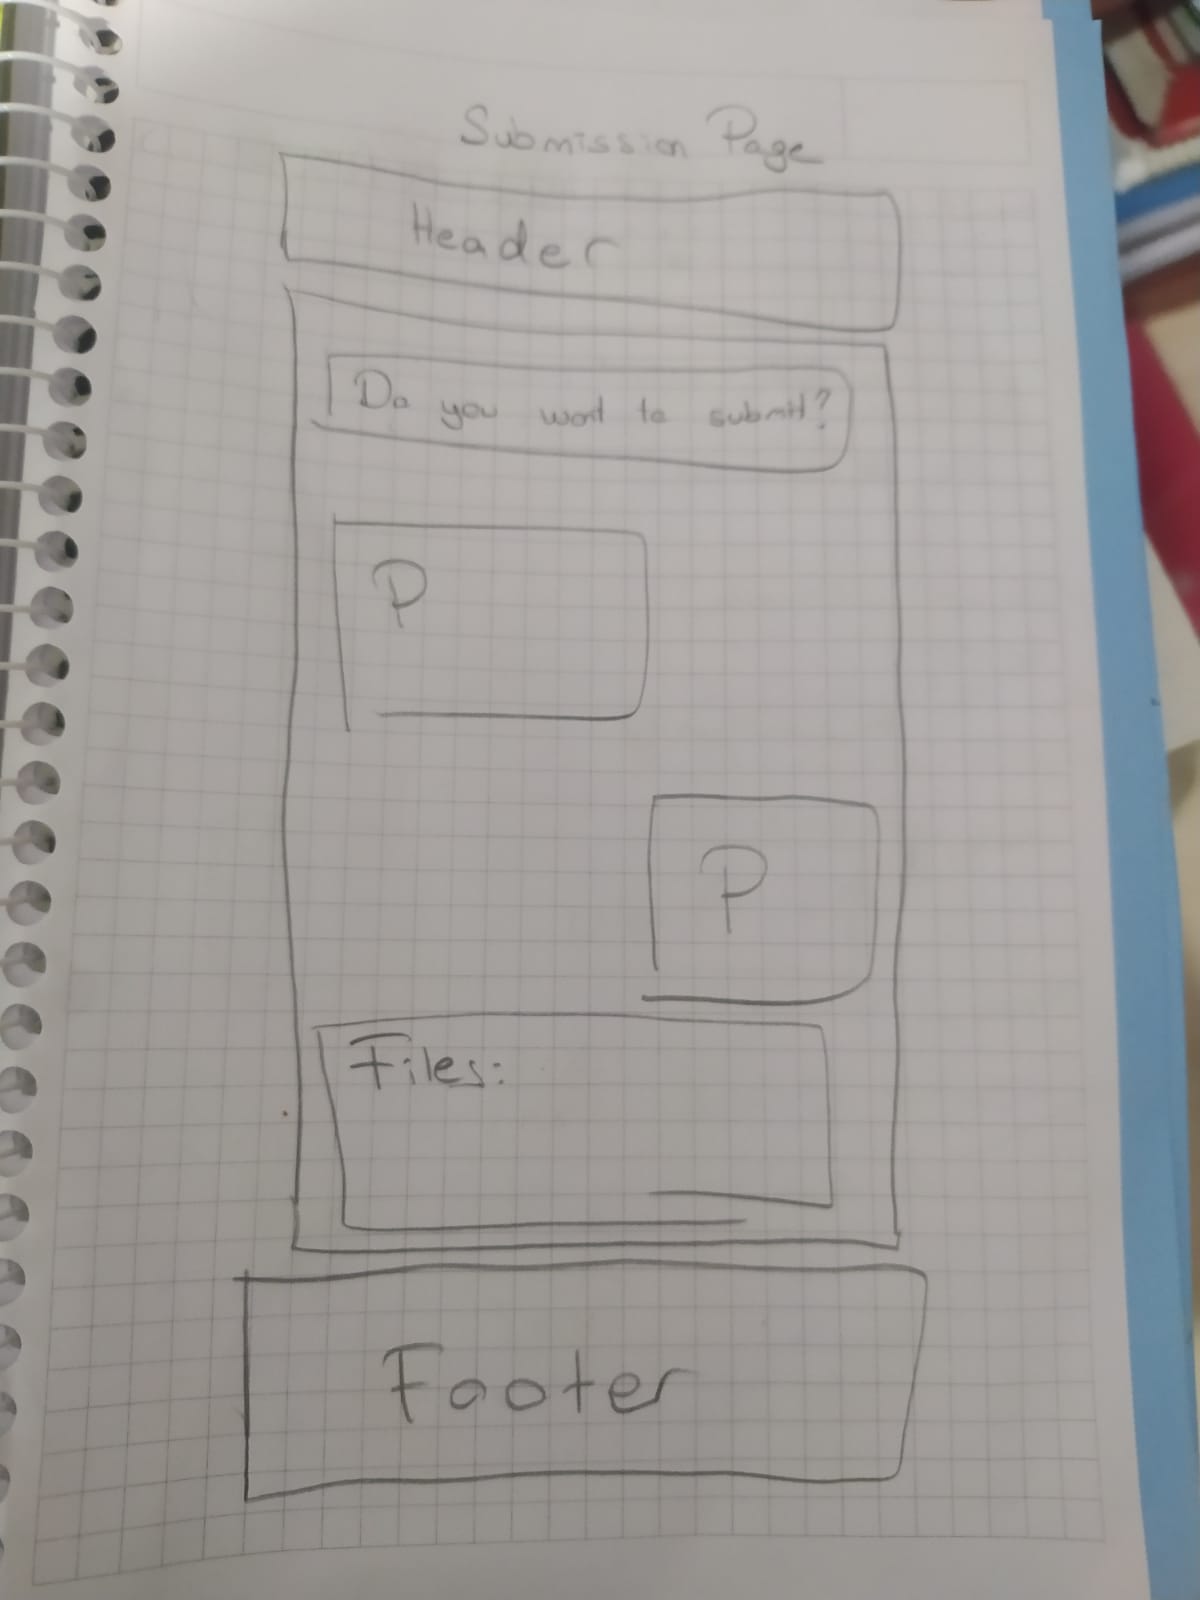 Submission Page
Header
Do you want to submit?
P
P
Files:
Footer